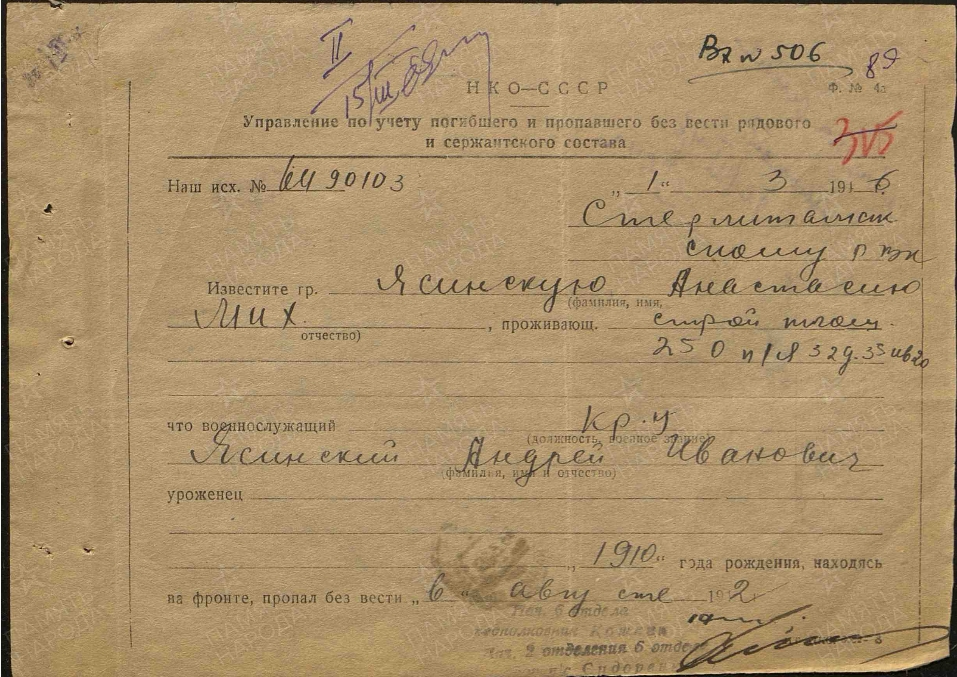 II
Вх № 506
89
15/III
НКО—СССР
Ф. № 4а
Управление по учету погибшего и пропавшего без вести рядового
и сержантского состава
315
Наш исх. № 6490103 „1“ 3 1946
Стерлитамак
скому рвк
Известите гр. Ясинскую Анастасию
(фамилия, имя,
Мих
отчество)
, проживающ. строй площ.
250 п/я 32 д. 35 кв 20
что военнослужащий кр-ц
(должность, военное звание)
Ясинский Андрей Иванович
(фамилия, имя и отчество)
уроженец
„1910“ года рождения, находясь
на фронте, пропал без вести „в“ августе 1942
Нач. 6 отдела
подполковник
Нач. 2 отделения 6 отдела